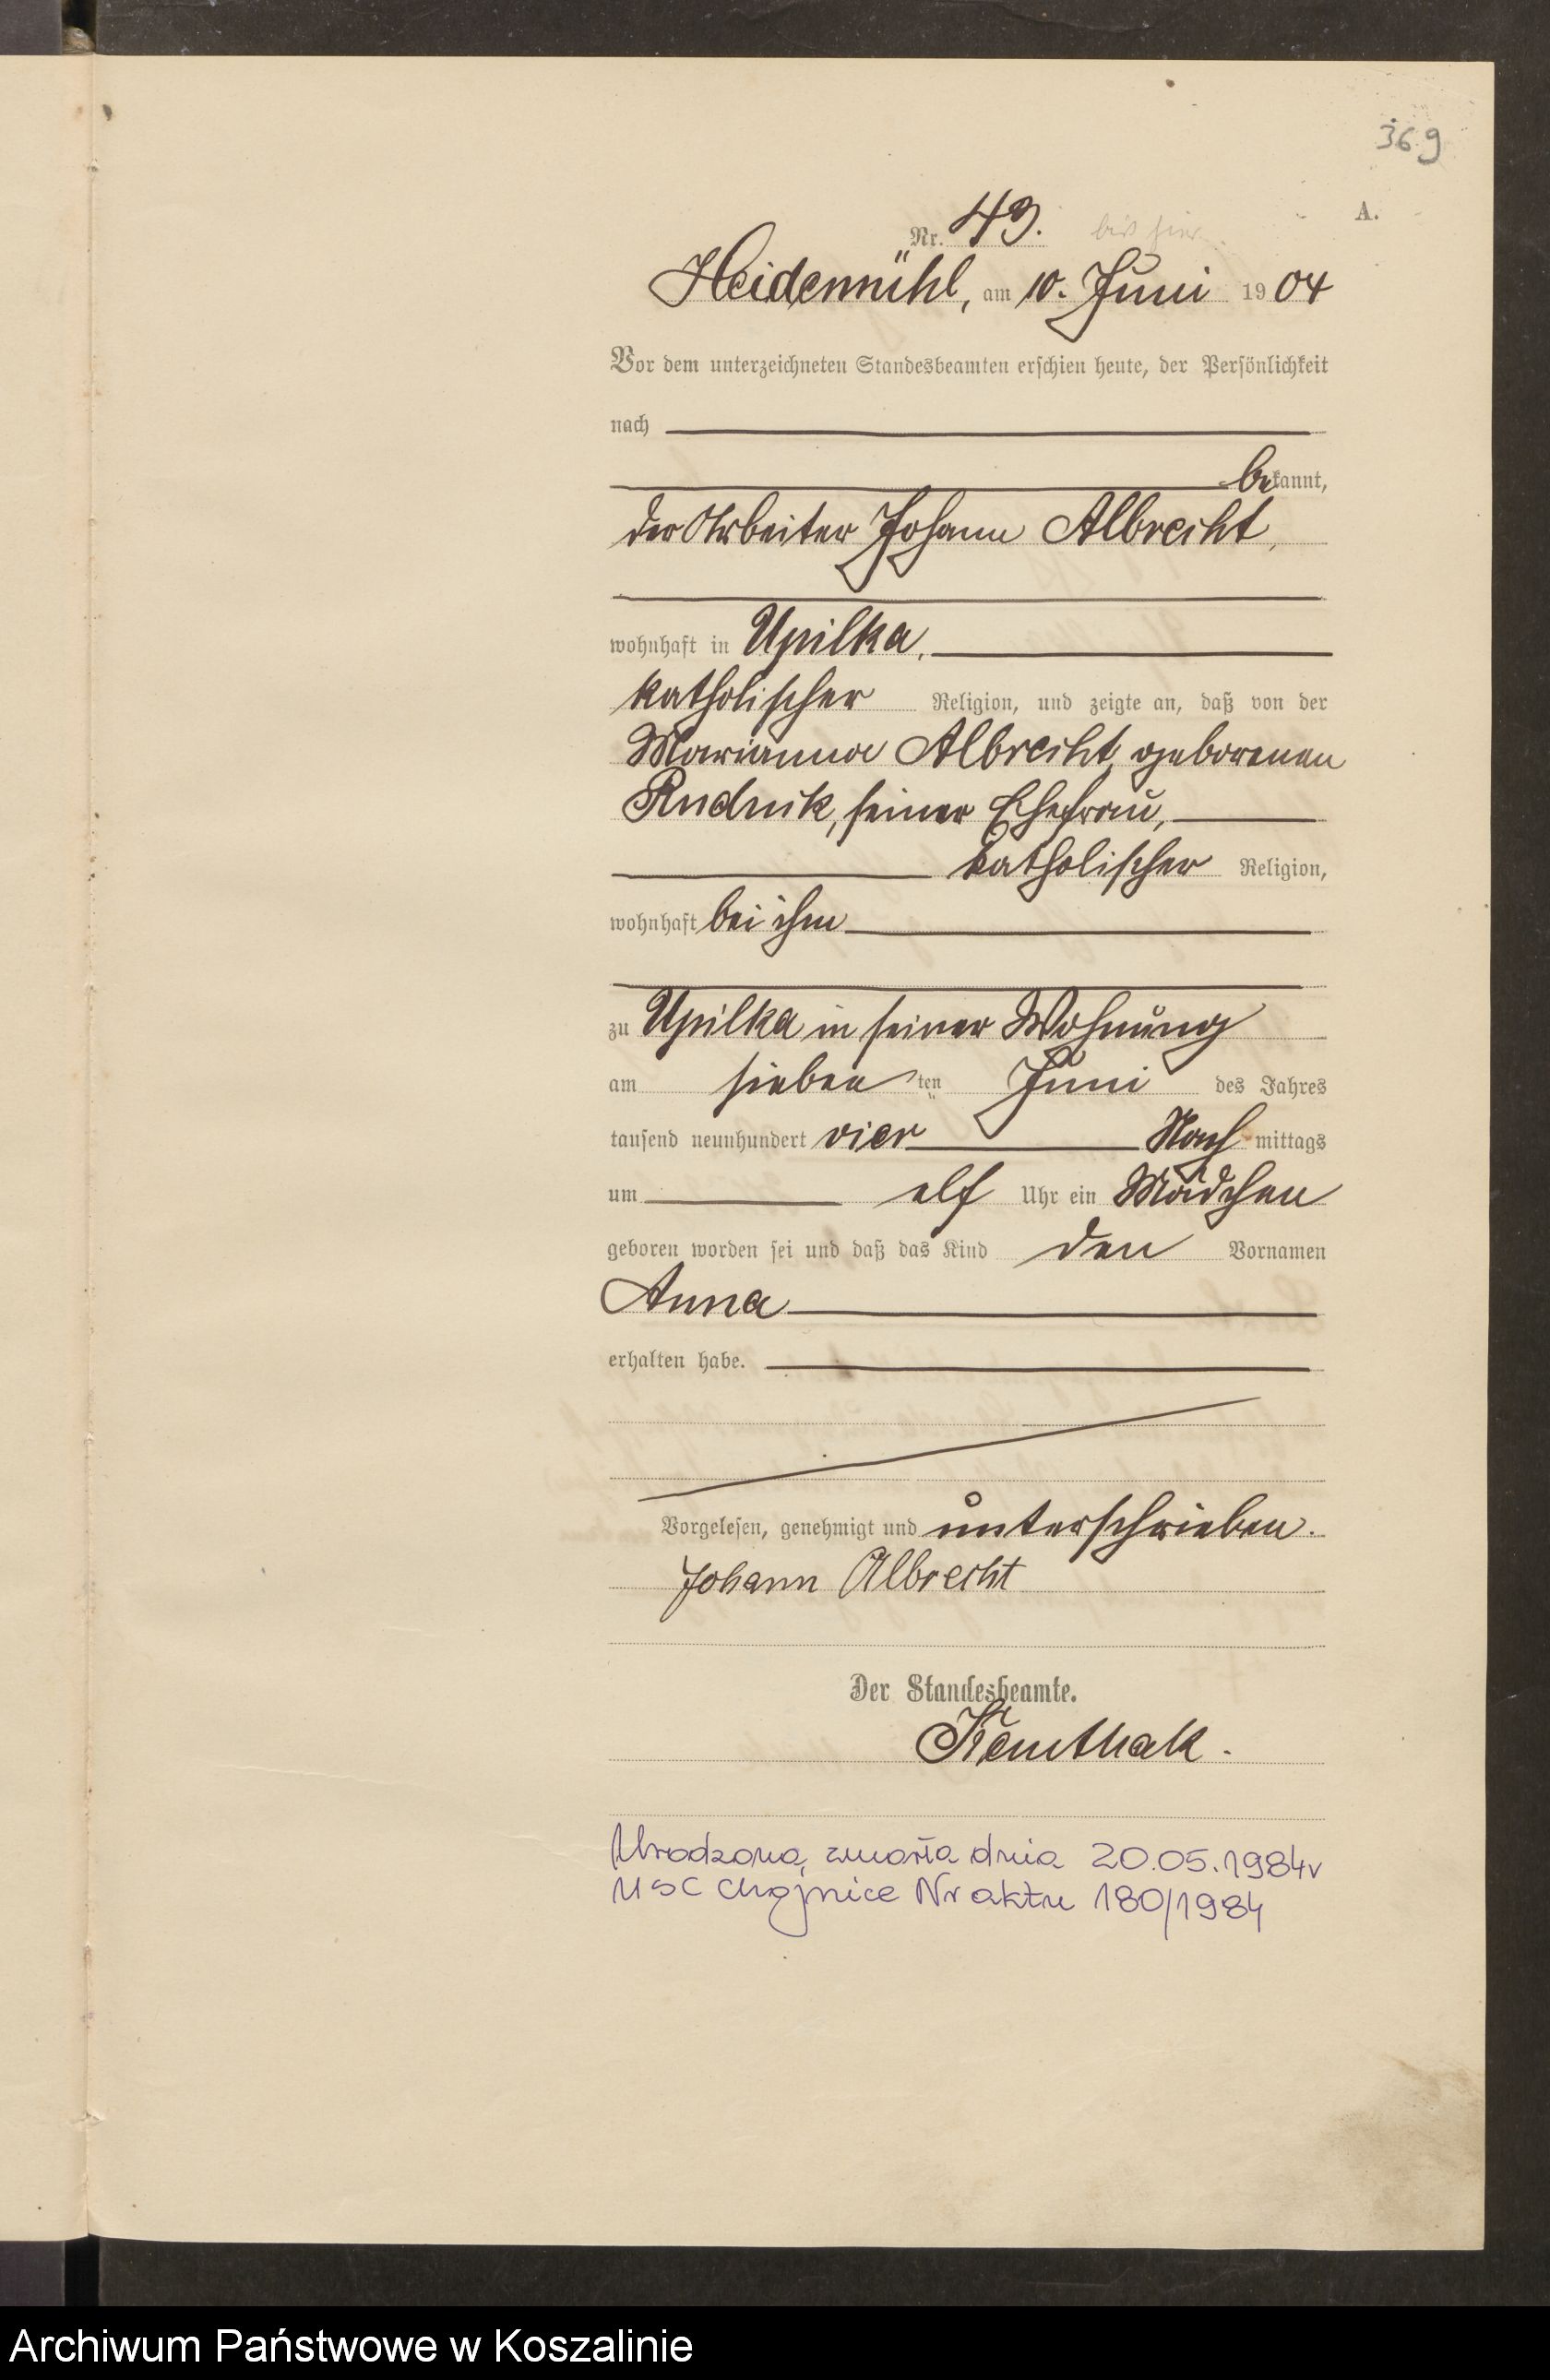 369
A.
Nr. 43.
Heidemühl, am 10. Juni 1904
Vor dem unterzeichneten Standesbeamten erschien heute, der Persönlichkeit
nach
bekannt,
der Arbeiter Johann Albrecht,
wohnhaft in Upilka,
katholischer Religion, und zeigte an, daß von der
Marianna Albrecht, geborenen
Rudnik, seiner Ehefrau,
katholischer Religion,
wohnhaft bei ihm
zu Upilka in seiner Wohnung
am siebenten Juni des Jahres
tausend neunhundert vier Nachmittags
um elf Uhr ein Mädchen
geboren worden sei und daß das Kind den Vornamen
Anna
erhalten habe.
Vorgelesen, genehmigt und unterschrieben.
Johann Albrecht
Der Standesbeamte.
Urodzona zmarła dnia 20.05.1984r
USC Chojnice Nr aktu 180/1984
Archiwum Państwowe w Koszalinie